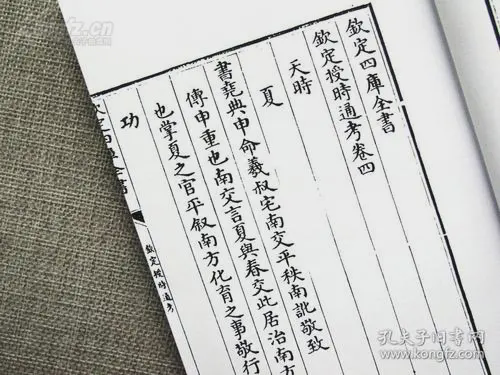 欽定四庫全書
欽定授時通考卷四
天時
夏
書堯典申命羲叔宅南交平秩南訛敬致
傳申重也南交言夏與春交此居治南方
也掌夏之官平叙南方化育之事敬行
功
欽定四庫全書
欽定授時通考
孔夫子旧书网
www.kongfz.com